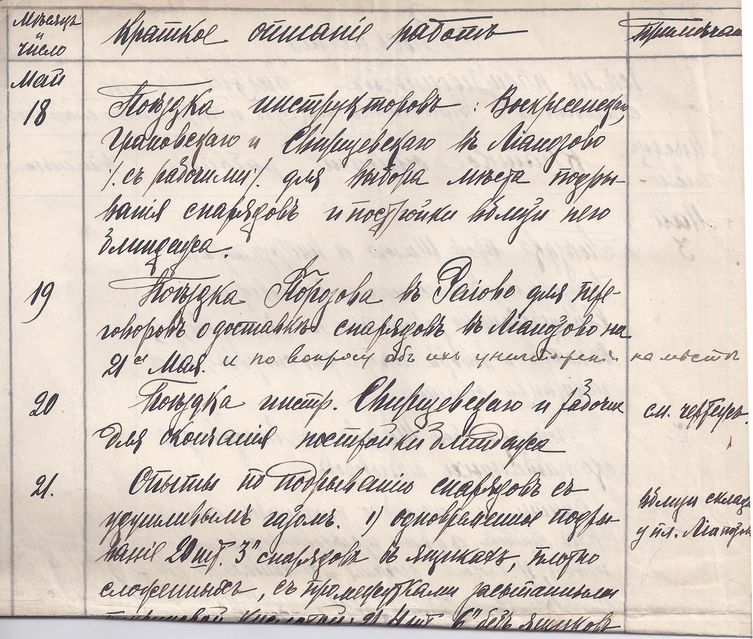 Мѣсяцъ и число
Краткое описанiе работъ
Примѣчан
Май
18
Поѣздка инструкторовъ: Воскресенскаго,
Грановскаго и Свирщевскаго въ Лiанозово
/. съ рабочими/. для выбора мѣста подры-
ванiя снарядовъ и постройки вблизи него
блиндажа.
19
Поѣздка въ Рогово для пере
говоровъ о доставкѣ снарядовъ въ Лiанозово на
21ое Мая. и по вопросу объ ихъ уничтоженiи на мѣстѣ
20
Поѣздка инстр. Свирщевскаго и рабочих
для окончанiя постройки блиндажа
см. чертежъ.
21.
Опыты по подрыванiю снарядовъ съ
удушливымъ газомъ. 1) одновременное подры
ванiе 20 шт. 3" снарядовъ въ ящикахъ, плотно
сложенныхъ, съ промежутками
вблизи склада
у пл. Лiанозо
кислотой; 2) 4 шт. 6" безъ ящиковъ